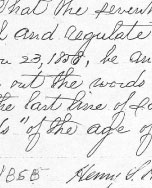 That the seventh
and regulate
23, 1858, be an
out the words
the last line of
" of the age of
1858
Henry S.